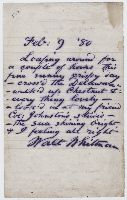 Feb: 9 '80
Loafing around for
a couple of hours this
fine sunny crispy day
– cross'd the Delaware
– walk'd up Chestnut st
– every thing lovely
– look'd in at my friend
Col: Johnston's
– the sun shining bright
& I feeling all right –
Walt Whitman